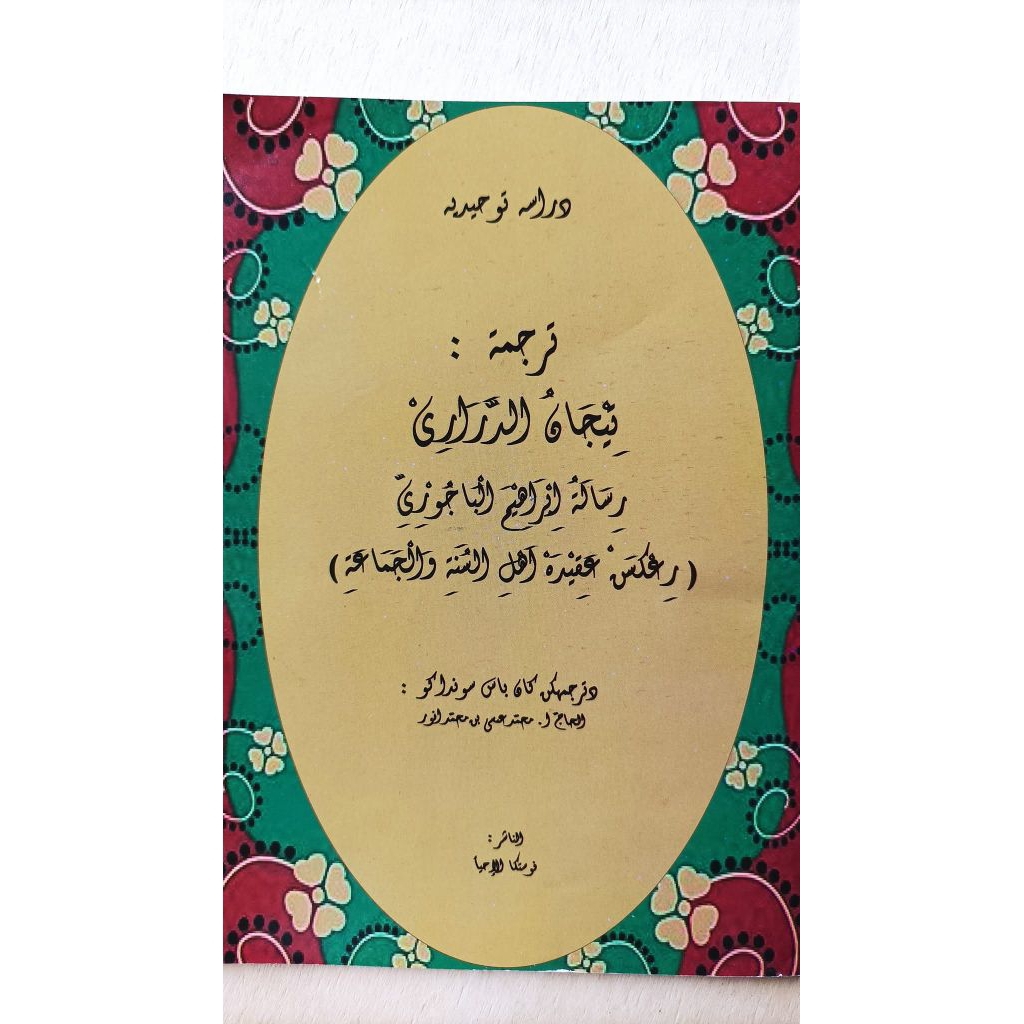 دراسه توحيديه
ترجمة :
تِيْجَانُ الدَّرَارِيْ
رِسَالَةُ اِبْرَاهِيْمَ الْبَاجُوْرِيِّ
( رِعْكَسْ عَقِيْدَهْ اَهْلِ السُّنَةِ وَالْجَمَاعَةِ )
دترجمهكن كان باس سونداكو :
الحاج ا. محمد عسى بن محمد انور
الناشر :
فوستكا الإحيأ